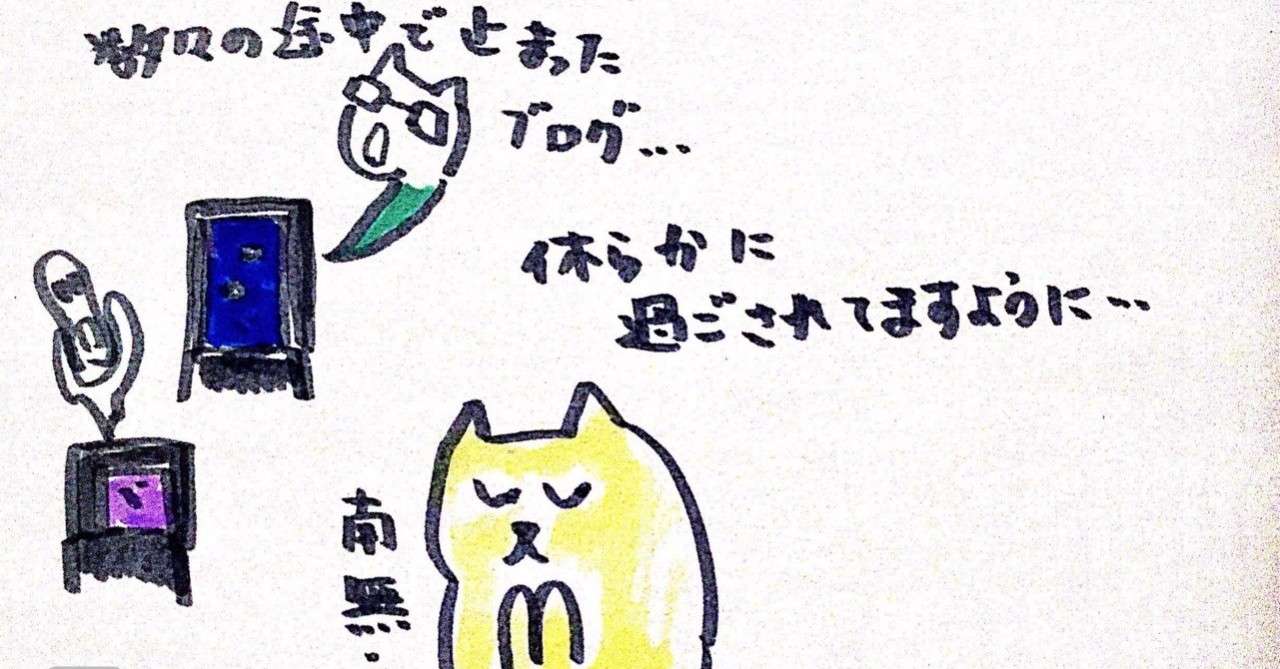 の途中で止まった
ブログ...
休らかに
過ごされてますように...
南無...